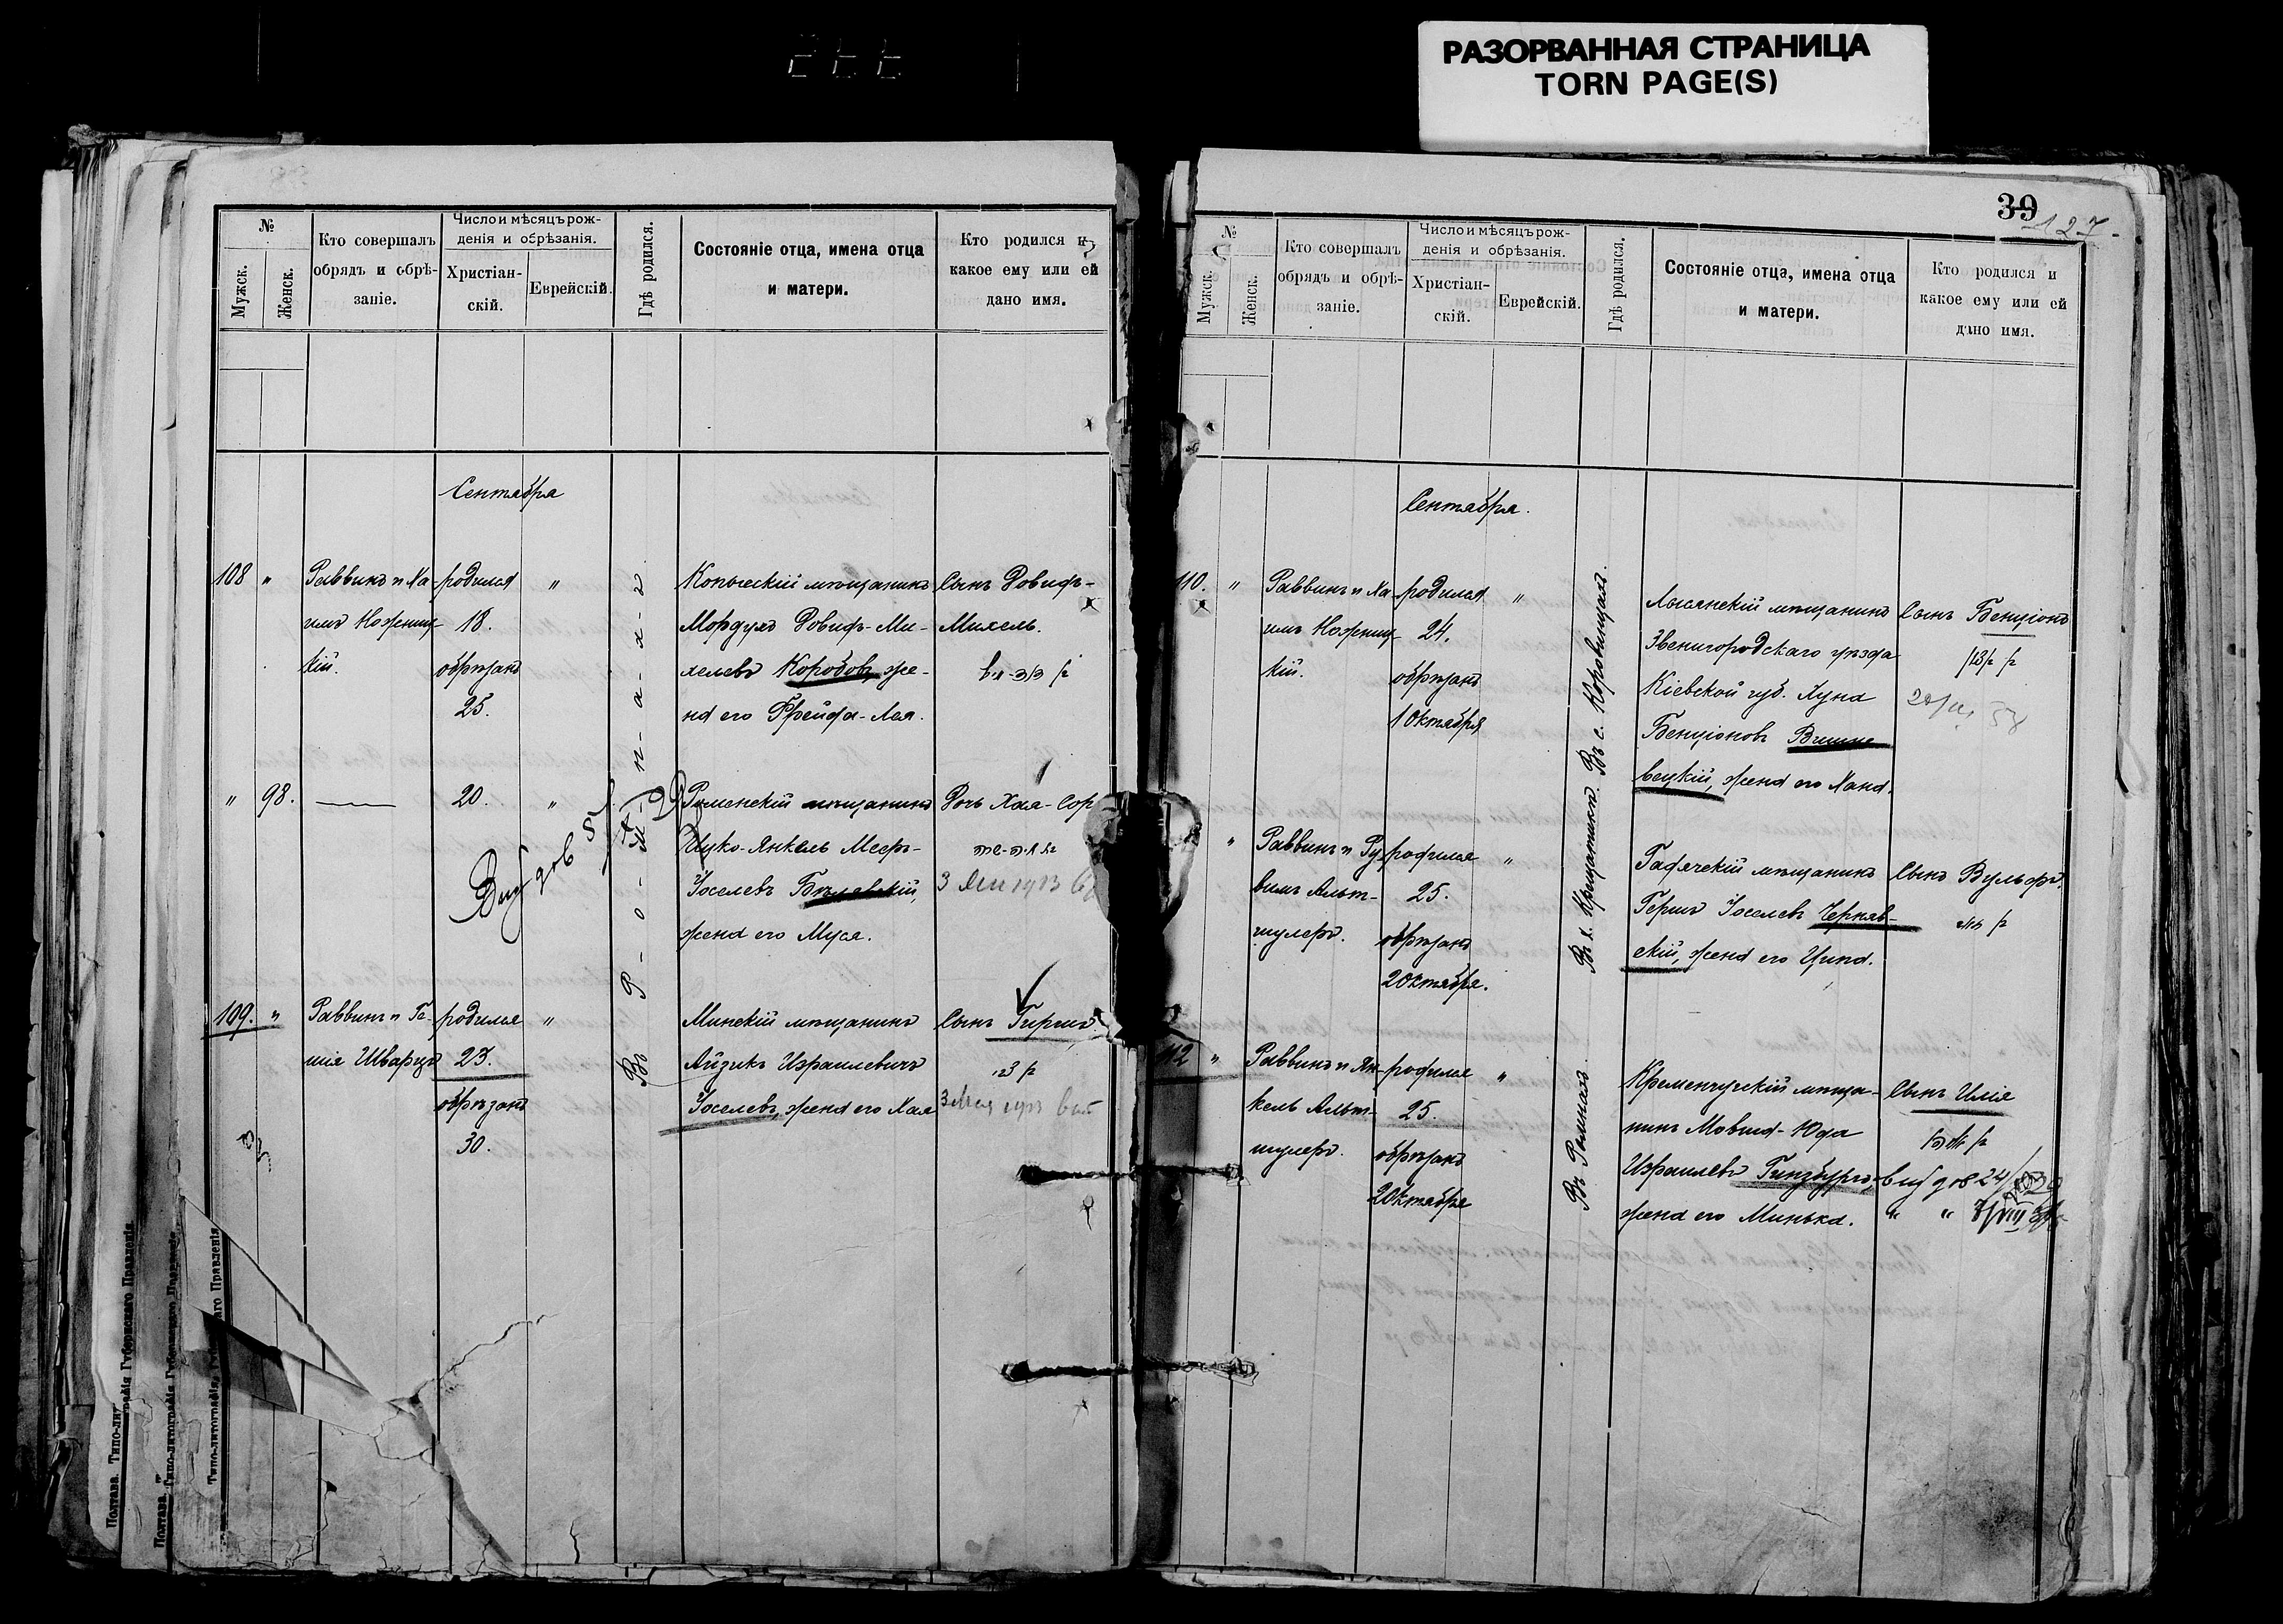 РАЗОРВАННАЯ СТРАНИЦА
TORN PAGE(S)
№
Мужск.
Женск.
Кто совершалъ
обрядъ и обрѣ-
заніе.
Число и мѣсяцъ рож-
денія и обрѣзанія.
Христіан-
скій.
Еврейскій.
Гдѣ родился.
Состояніе отца, имена отца
и матери.
Кто родился и
какое ему или ей
дано имя.
Сентября
108 "
Раввинъ и Ха-
имъ Ножниц-
кій.
родился
18.
обрѣзанъ
25.
"
Въ Р-о-м-н-а-х-ъ
Копысскій мѣщанинъ
Мордухъ Довидъ-Ми-
хелевъ Коробов, же-
на его Фрейда-Лея.
Сынъ Довидъ-
Михель.
" 98.
20.
"
Роменскій мѣщанинъ
Ицко-Янкель Меер-
Іоселевъ Бѣлевскій,
жена его Муся.
Дочь Хая-Сор
3 1913
109. "
Раввинъ и Ге-
шія Шварцъ
родился
23.
обрѣзанъ
30.
"
Минскій мѣщанинъ
Айзикъ Израилевичъ
Іоселевъ, жена его Хая
Сынъ Гиршъ
3 Мая 1913
39
127
№
Мужск.
Женск.
Кто совершалъ
обрядъ и обрѣ-
заніе.
Число и мѣсяцъ рож-
денія и обрѣзанія.
Христіан-
скій.
Еврейскій.
Гдѣ родился.
Состояніе отца, имена отца
и матери.
Кто родился и
какое ему или ей
дано имя.
Сентября.
110. "
Раввинъ и Ха
имъ Ножниц-
кій.
родился
24.
обрѣзанъ
1 Октября
"
Въ с. Коровинцахъ.
Лысянскій мѣщанинъ
Звенигородскаго уѣзда
Кіевской губ. Хуна
Бенціоновъ Вишне
вецкій, жена его Хана.
Сынъ Бенціонъ
"
Раввинъ и Ру
вимъ Альт-
шулеръ.
родился
25.
обрѣзанъ
2 Октября.
"
Въ х.
Гадячскій мѣщанинъ
Гершъ Іоселевъ Черняв-
скій, жена его Ципа.
Сынъ Вульфъ.
112 "
Раввинъ и Ян-
кель Альт-
шулеръ.
родился
25.
обрѣзанъ
2 Октября
"
Въ Ромнахъ.
Кременчугскій мѣща-
нинъ Мовша-Юда
Израилевъ Гинзбургъ,
жена его Минька.
Сынъ Илія